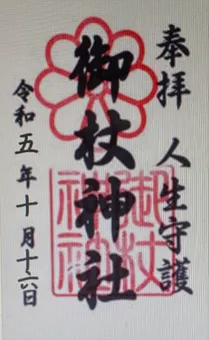 奉拝 人生守護
御杖神社
御杖神社
令和五年十月十六日